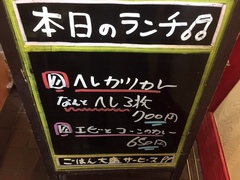 本日のランチ
ヘレカツカレー
なんと ヘレ3枚
700円
エビとコーンのカレー
650円
ごはん大盛サービス